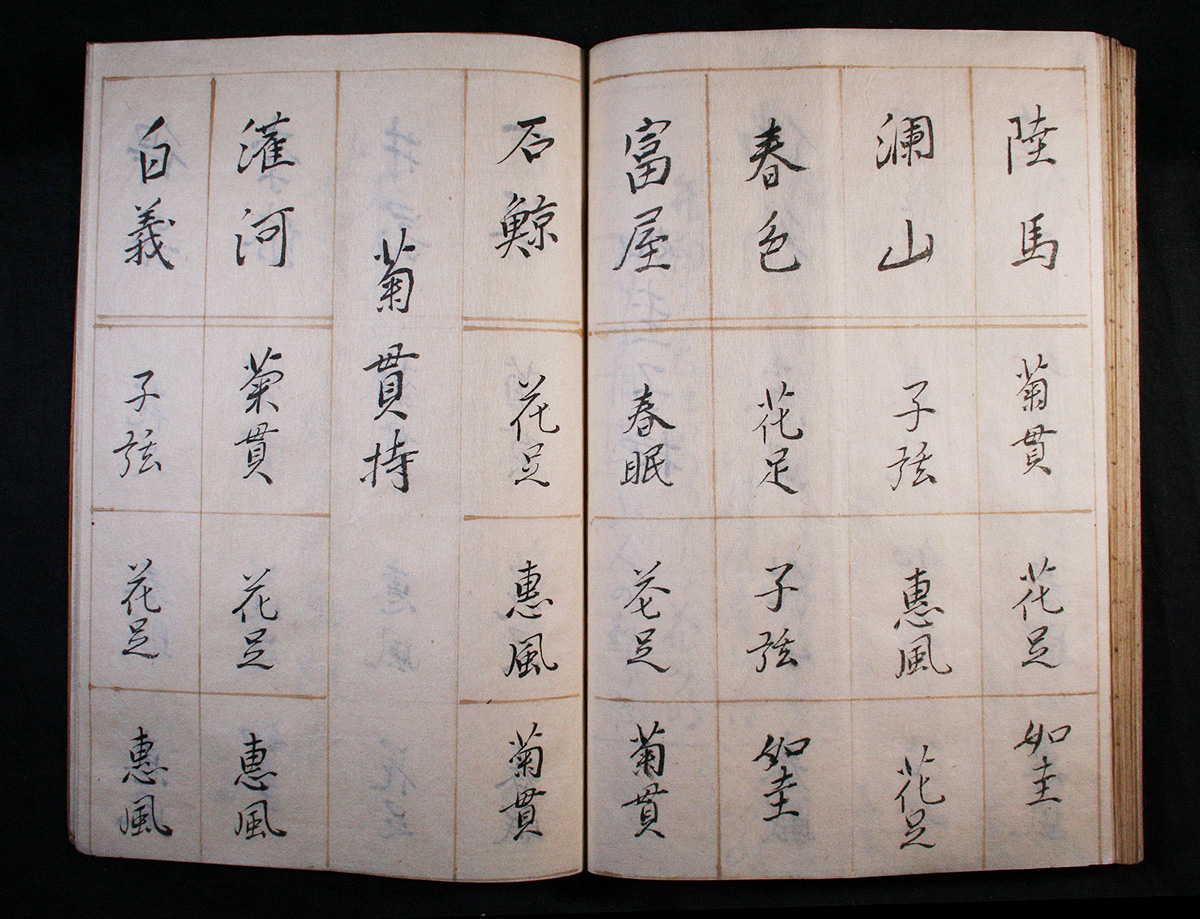 陸馬
菊貫
花足
如圭
瀾山
子弦
惠風
花足
春色
花足
子弦
如圭
富屋
春眠
花足
菊貫
石鯨
花足
惠風
菊貫
菊貫持
灌河
菊貫
花足
惠風
白義
子弦
花足
惠風